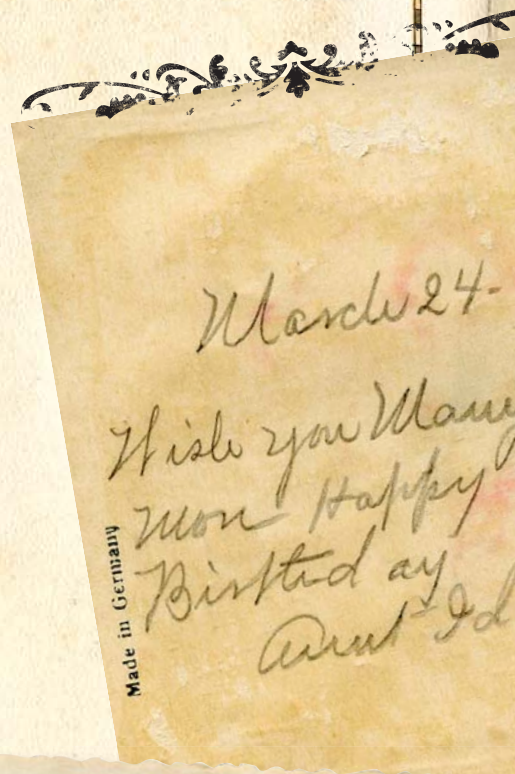 March 24-
Wish you Many
mor Happy
Birthd ay
Aunt Id
Made in Germany